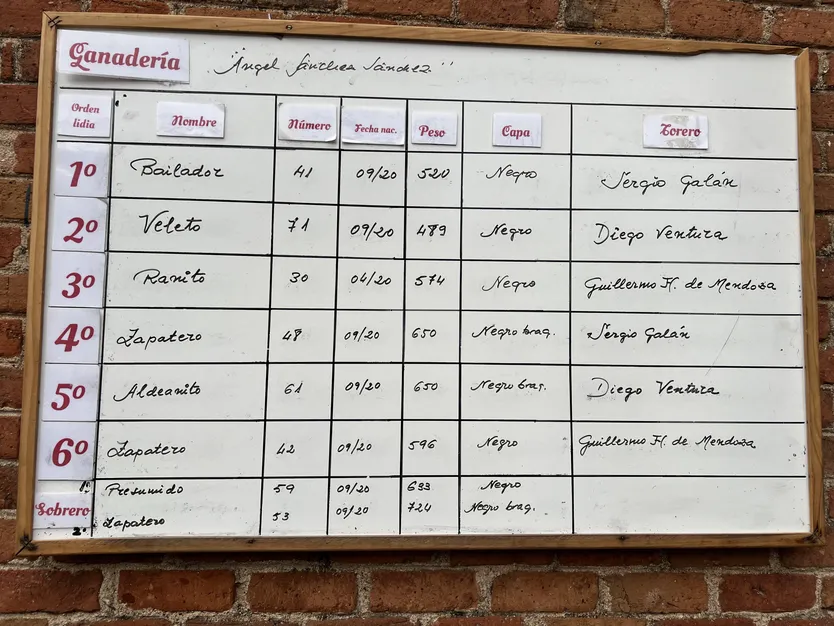 Ganadería "Angel Sánchez Sánchez"
Orden lidia Nombre Número Fecha nac. Peso Capa Torero
1º Bailador 41 09/20 520 Negro Sergio Galán
2º Veleto 71 09/20 489 Negro Diego Ventura
3º Ranito 30 04/20 574 Negro Guillermo H. de Mendoza
4º Zapatero 48 09/20 650 Negro brag. Sergio Galán
5º Aldeanito 61 09/20 650 Negro brag. Diego Ventura
6º Zapatero 42 09/20 596 Negro Guillermo H. de Mendoza
Sobrero 1º Presumido 59 09/20 633 Negro
2º Zapatero 53 09/20 724 Negro brag.